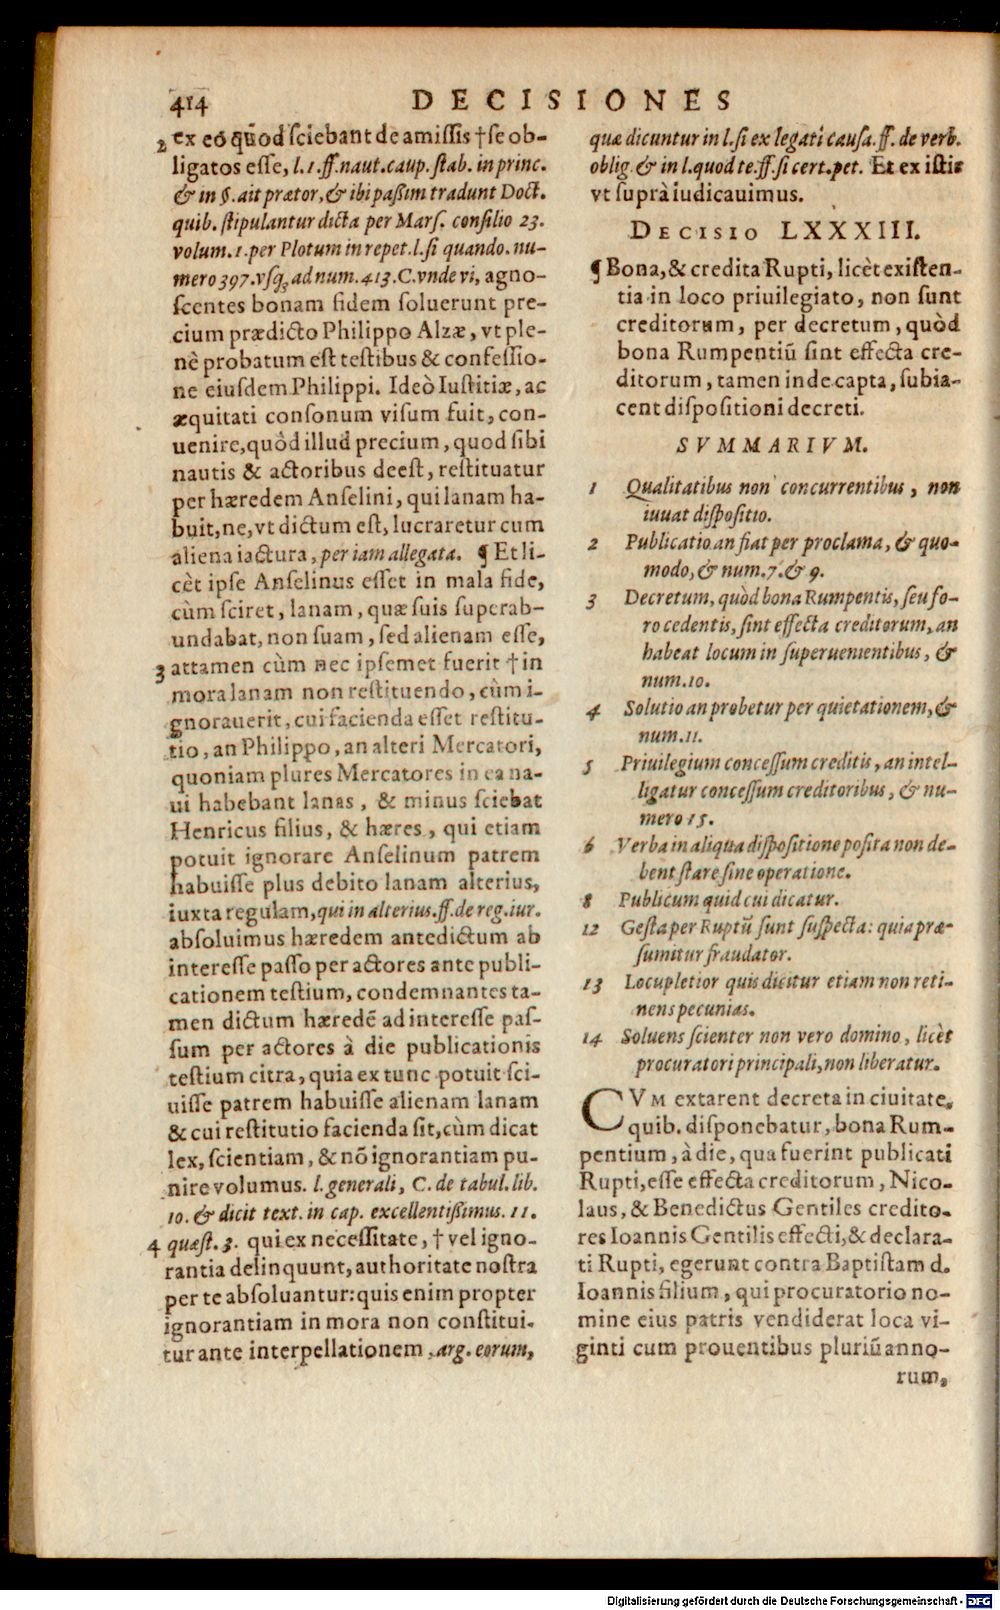 414 DECISIONES
2 ex eó quod sciebant de amissis † se ob-
ligatos esse, l.1.ff.naut.caup.stab. in princ.
& in §. ait prætor, & ibi paßim tradunt Doct.
quib. stipulantur dicta per Mars. consilio 23.
volum.1. per Plotum in repet.l.si quando. nu-
mero 397. vsq; ad num.413.C.vnde vi, agno-
scentes bonam fidem soluerunt pre-
cium prædicto Philippo Alzæ, vt ple-
nè probatum est testibus & confessio-
ne eiusdem Philippi. Ideò Iustitiæ, ac
æquitati consonum visum fuit, con-
uenire, quòd illud precium, quod sibi
nautis & actoribus deest, restituatur
per hæredem Anselini, qui lanam ha-
buit, ne, vt dictum est, lucraretur cum
aliena iactura, per iam allegata. ¶ Et li-
cèt ipse Anselinus esset in mala fide,
cùm sciret, lanam, quæ suis superab-
undabat, non suam, sed alienam esse,
3 attamen cùm nec ipsemet fuerit † in
mora lanam non restituendo, cùm i-
gnorauerit, cui facienda esset restitu-
tio, an Philippo, an alteri Mercatori,
quoniam plures Mercatores in ea na-
ui habebant lanas, & minus sciebat
Henricus filius, & hæres, qui etiam
potuit ignorare Anselinum patrem
habuisse plus debito lanam alterius,
iuxta regulam, qui in alterius.ff.de reg.iur.
absoluimus hæredem antedictum ab
interesse passo per actores ante publi-
cationem testium, condemnantes ta-
men dictum hæredē ad interesse pas-
sum per actores à die publicationis
testium citra, quia ex tunc potuit sci-
uisse patrem habuisse alienam lanam
& cui restitutio facienda sit, cùm dicat
lex, scientiam, & nō ignorantiam pu-
nire volumus. l. generali, C. de tabul. lib.
10. & dicit text. in cap. excellentißimus. 11.
4 quæst. 3. qui ex necessitate, † vel igno-
rantia delinquunt, authoritate nostra
per te absoluantur: quis enim propter
ignorantiam in mora non constitui-
tur ante interpellationem. arg. eorum,
quæ dicuntur in l.si ex legati causa. ff. de verb.
oblig. & in l.quod te.ff.si cert.pet. Et ex istis
vt suprà iudicauimus.
DECISIO LXXXIII.
¶ Bona, & credita Rupti, licèt existen-
tia in loco priuilegiato, non sunt
creditorum, per decretum, quòd
bona Rumpentiū sint effecta cre-
ditorum, tamen inde capta, subia-
cent dispositioni decreti.
SVMMARIVM.
1 Qualitatibus non concurrentibus, non
iuuat dispositio.
2 Publicatio an fiat per proclama, & quo-
modo, & num.7. & 9.
3 Decretum, quòd bona Rumpentis, seu fo-
ro cedentis, sint effecta creditorum, an
habeat locum in superuenientibus, &
num.10.
4 Solutio an probetur per quietationem, &
num.11.
5 Priuilegium concessum creditis, an intel-
ligatur concessum creditoribus, & nu-
mero 15.
6 Verba in aliqua dispositione posita non de-
bent stare sine operatione.
8 Publicum quid cui dicatur.
12 Gesta per Ruptū sunt suspecta: quia præ-
sumitur fraudator.
13 Locupletior quis dicitur etiam non reti-
nens pecunias.
14 Soluens scienter non vero domino, licèt
procuratori principali, non liberatur.
CVM extarent decreta in ciuitate,
quib. disponebatur, bona Rum-
pentium, à die, qua fuerint publicati
Rupti, esse effecta creditorum, Nico-
laus, & Benedictus Gentiles credito-
res Ioannis Gentilis effecti, & declara-
ti Rupti, egerunt contra Baptistam d.
Ioannis filium, qui procuratorio no-
mine eius patris vendiderat loca vi-
ginti cum prouentibus pluriū anno-
rum,
Digitalisierung gefördert durch die Deutsche Forschungsgemeinschaft - DFG